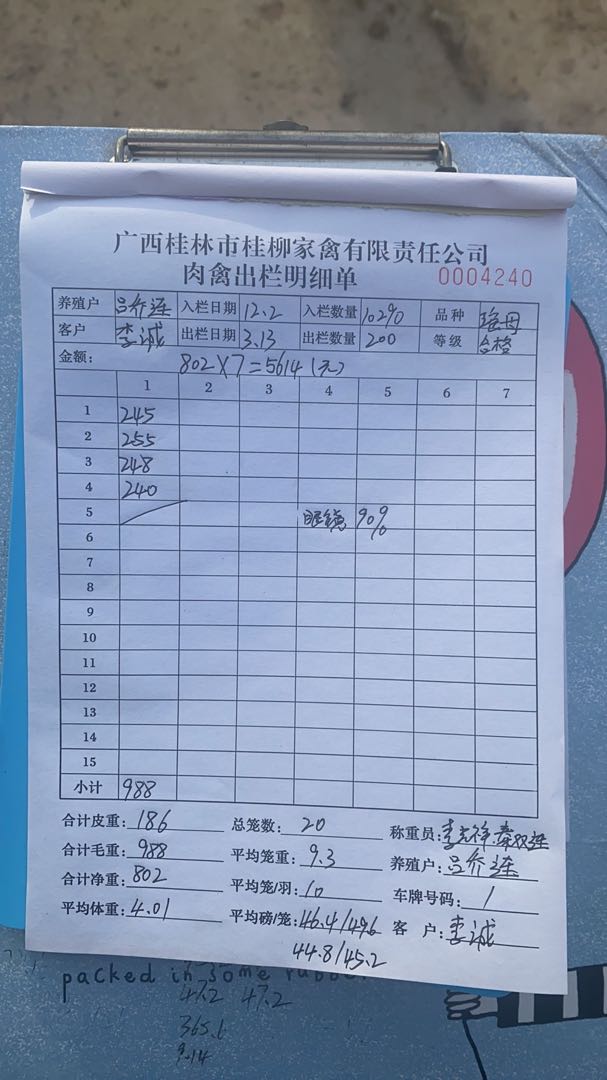 广西桂林市桂柳家禽有限责任公司
肉禽出栏明细单 0004240
养殖户 吕乔连 入栏日期 12.2 入栏数量 10290 品种 瑶母
客户 李诚 出栏日期 3.13 出栏数量 200 等级 合格
金额: 802×7=5614(元)
1 2 3 4 5 6 7
1 245
2 255
3 248
4 240
5 眼镜 90%
6
7
8
9
10
11
12
13
14
15
小计 988
合计皮重: 186 总笼数: 20 称重员:
合计毛重: 988 平均笼重: 9.3 养殖户: 吕乔连
合计净重: 802 平均笼/羽: 10 车牌号码: /
平均体重: 4.01 平均磅/笼: 46.4/49.6 客户: 李诚
44.8/45.2
packed in some
47.2 47.2
365.6
9.14